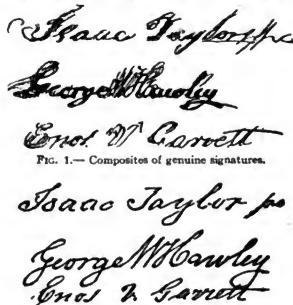 Isaac Taylor
George W Hawley
Enos W Garrett
FIG. 1.— Composites of genuine signatures.
Isaac Taylor
George W Hawley
Enos Garrett